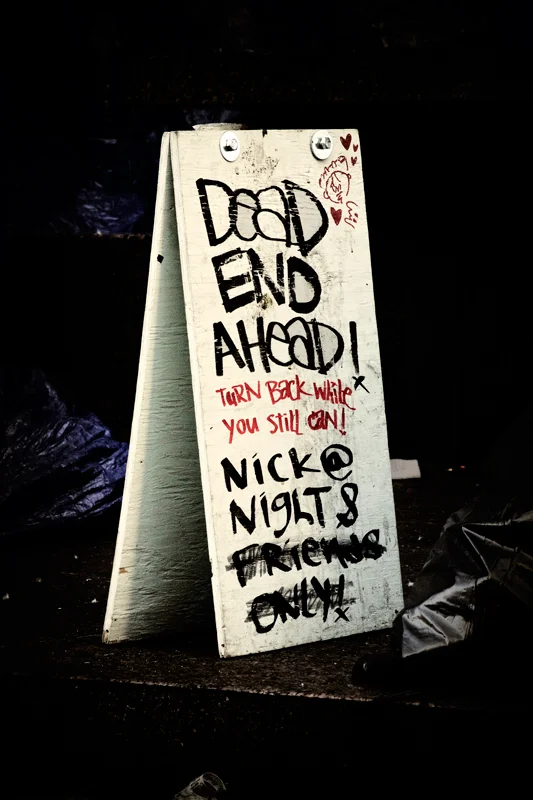 DeaD
END
AHeaD!
TURN Back while
you still can!
Nick@
NigHT &
FRieNDS
ONLY!
x